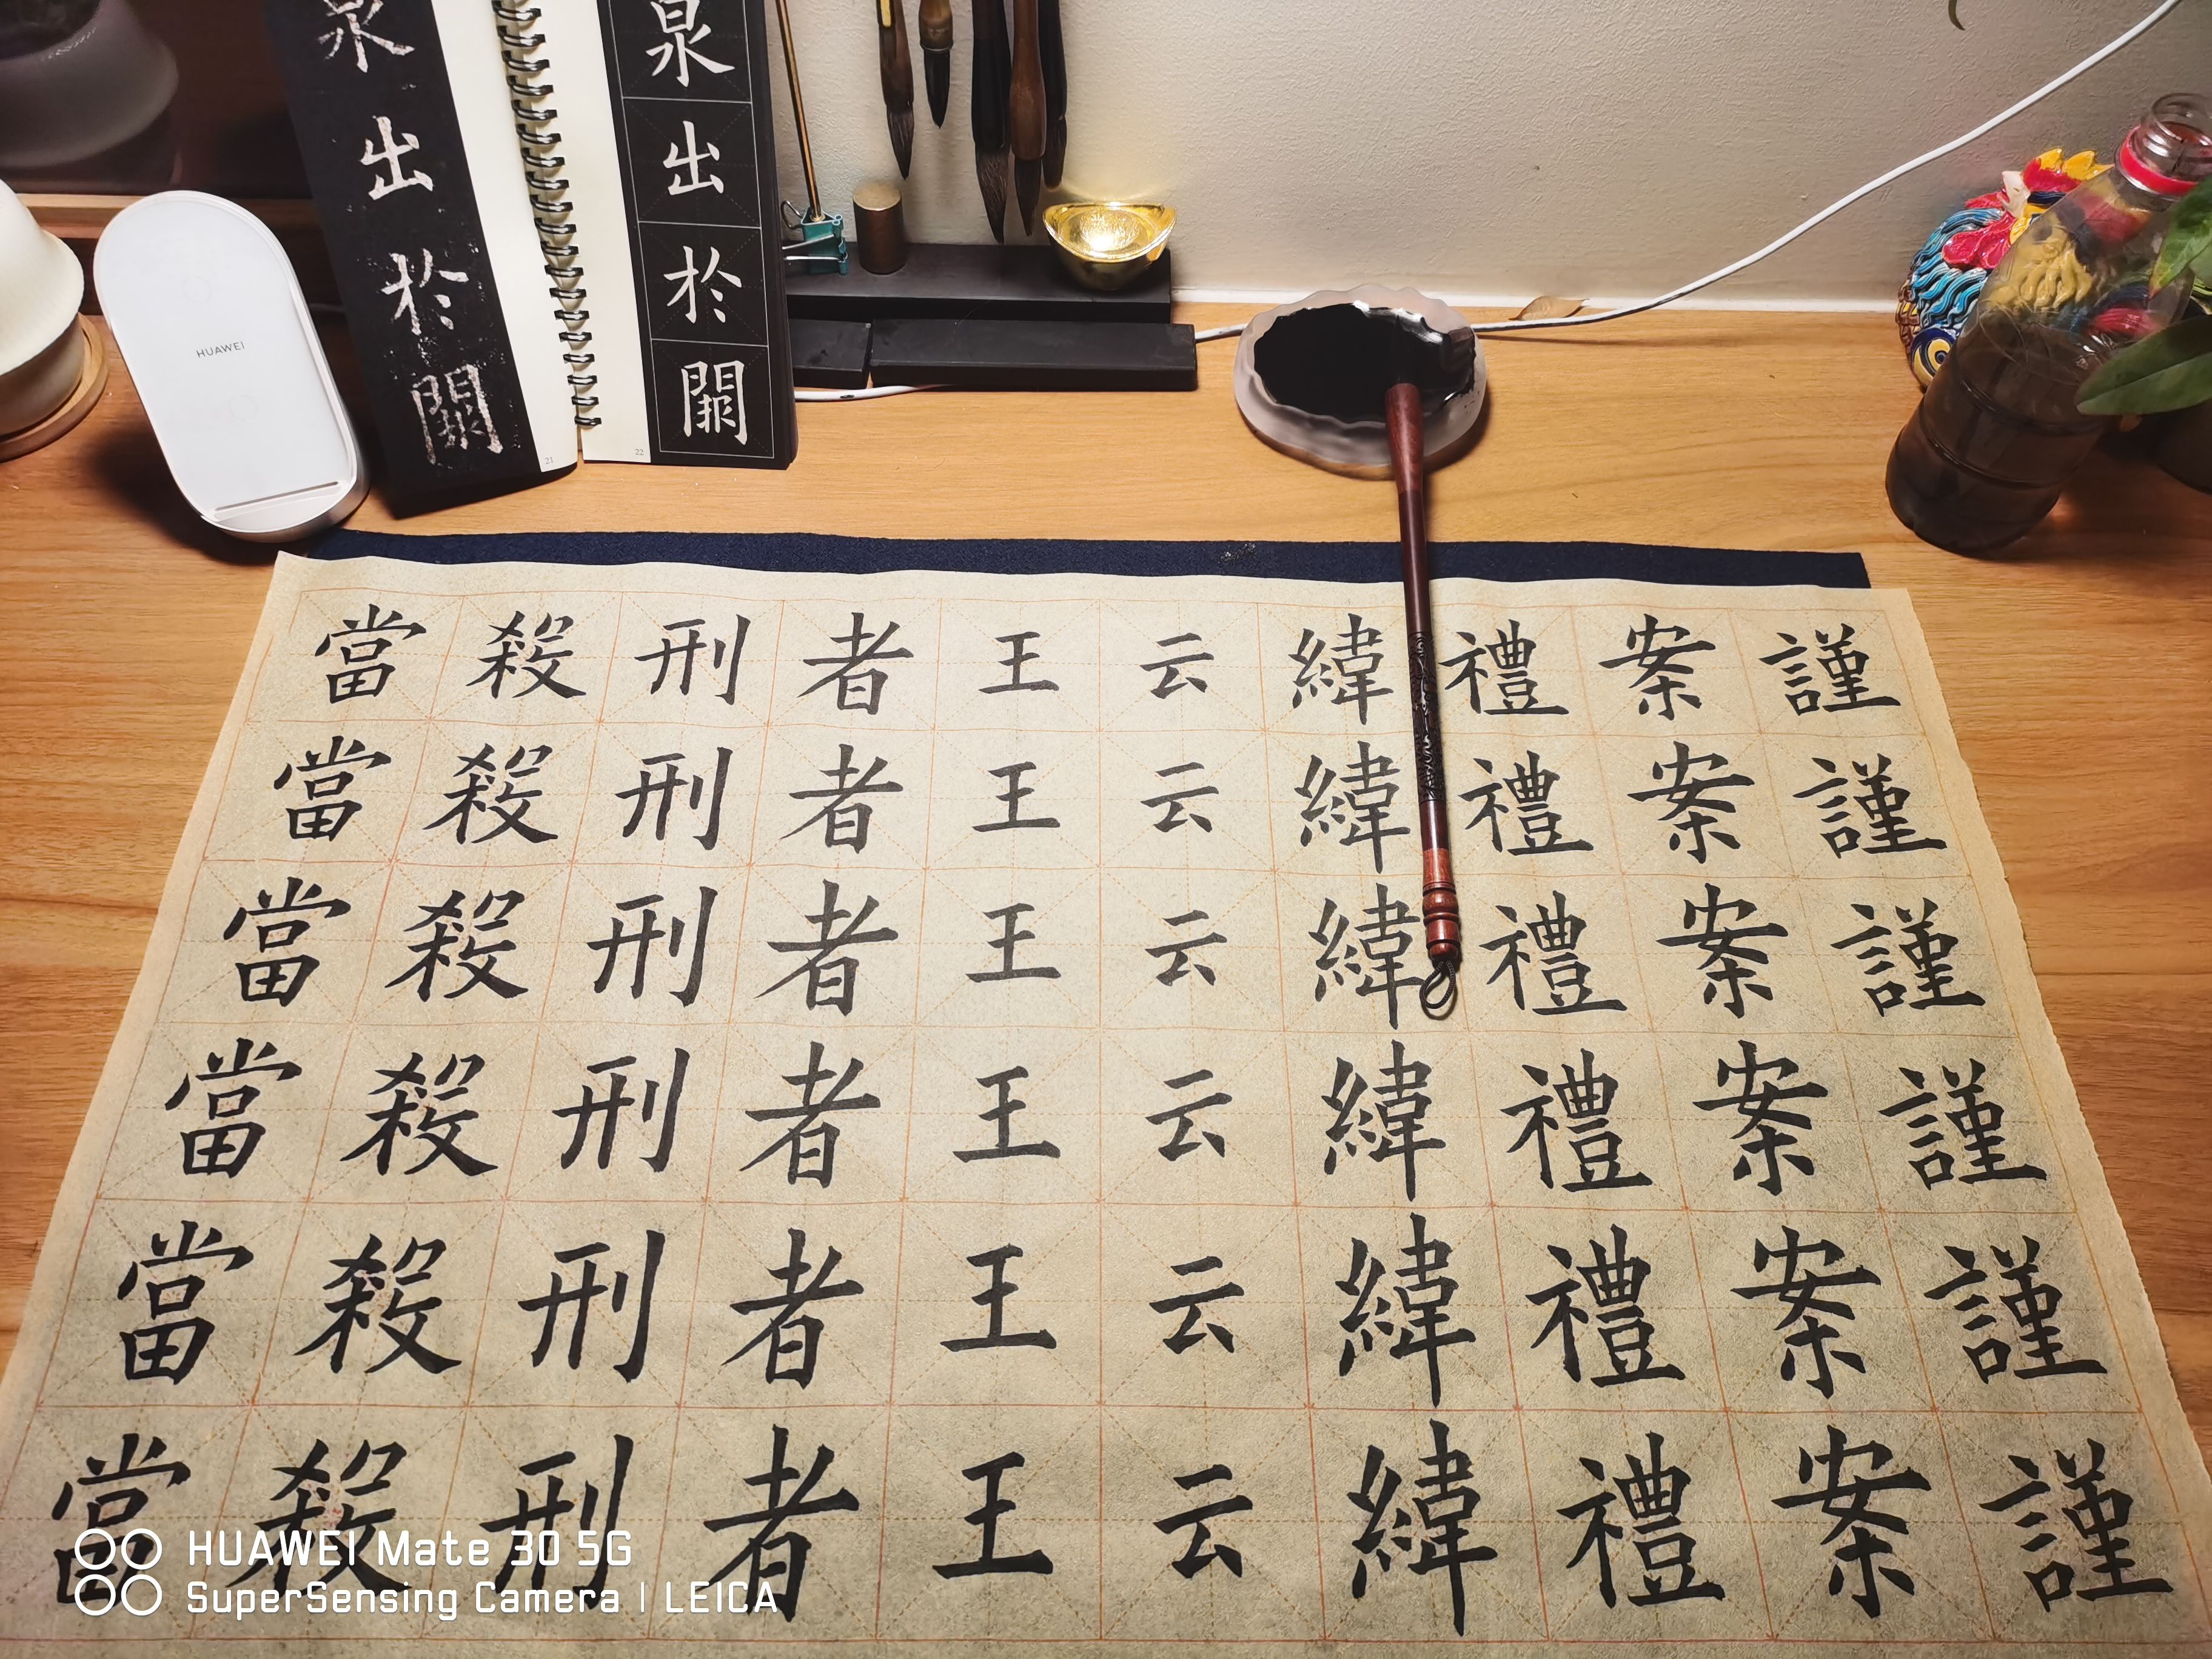 泉出於闕
21
泉出於闕
22
HUAWEI
謹謹謹謹謹謹
案案案案案案
禮禮禮禮禮禮
緯緯緯緯緯緯
云云云云云云
王王王王王王
者者者者者者
刑刑刑刑刑刑
殺殺殺殺殺殺
當當當當當當
HUAWEI Mate 30 5G
SuperSensing Camera | LEICA